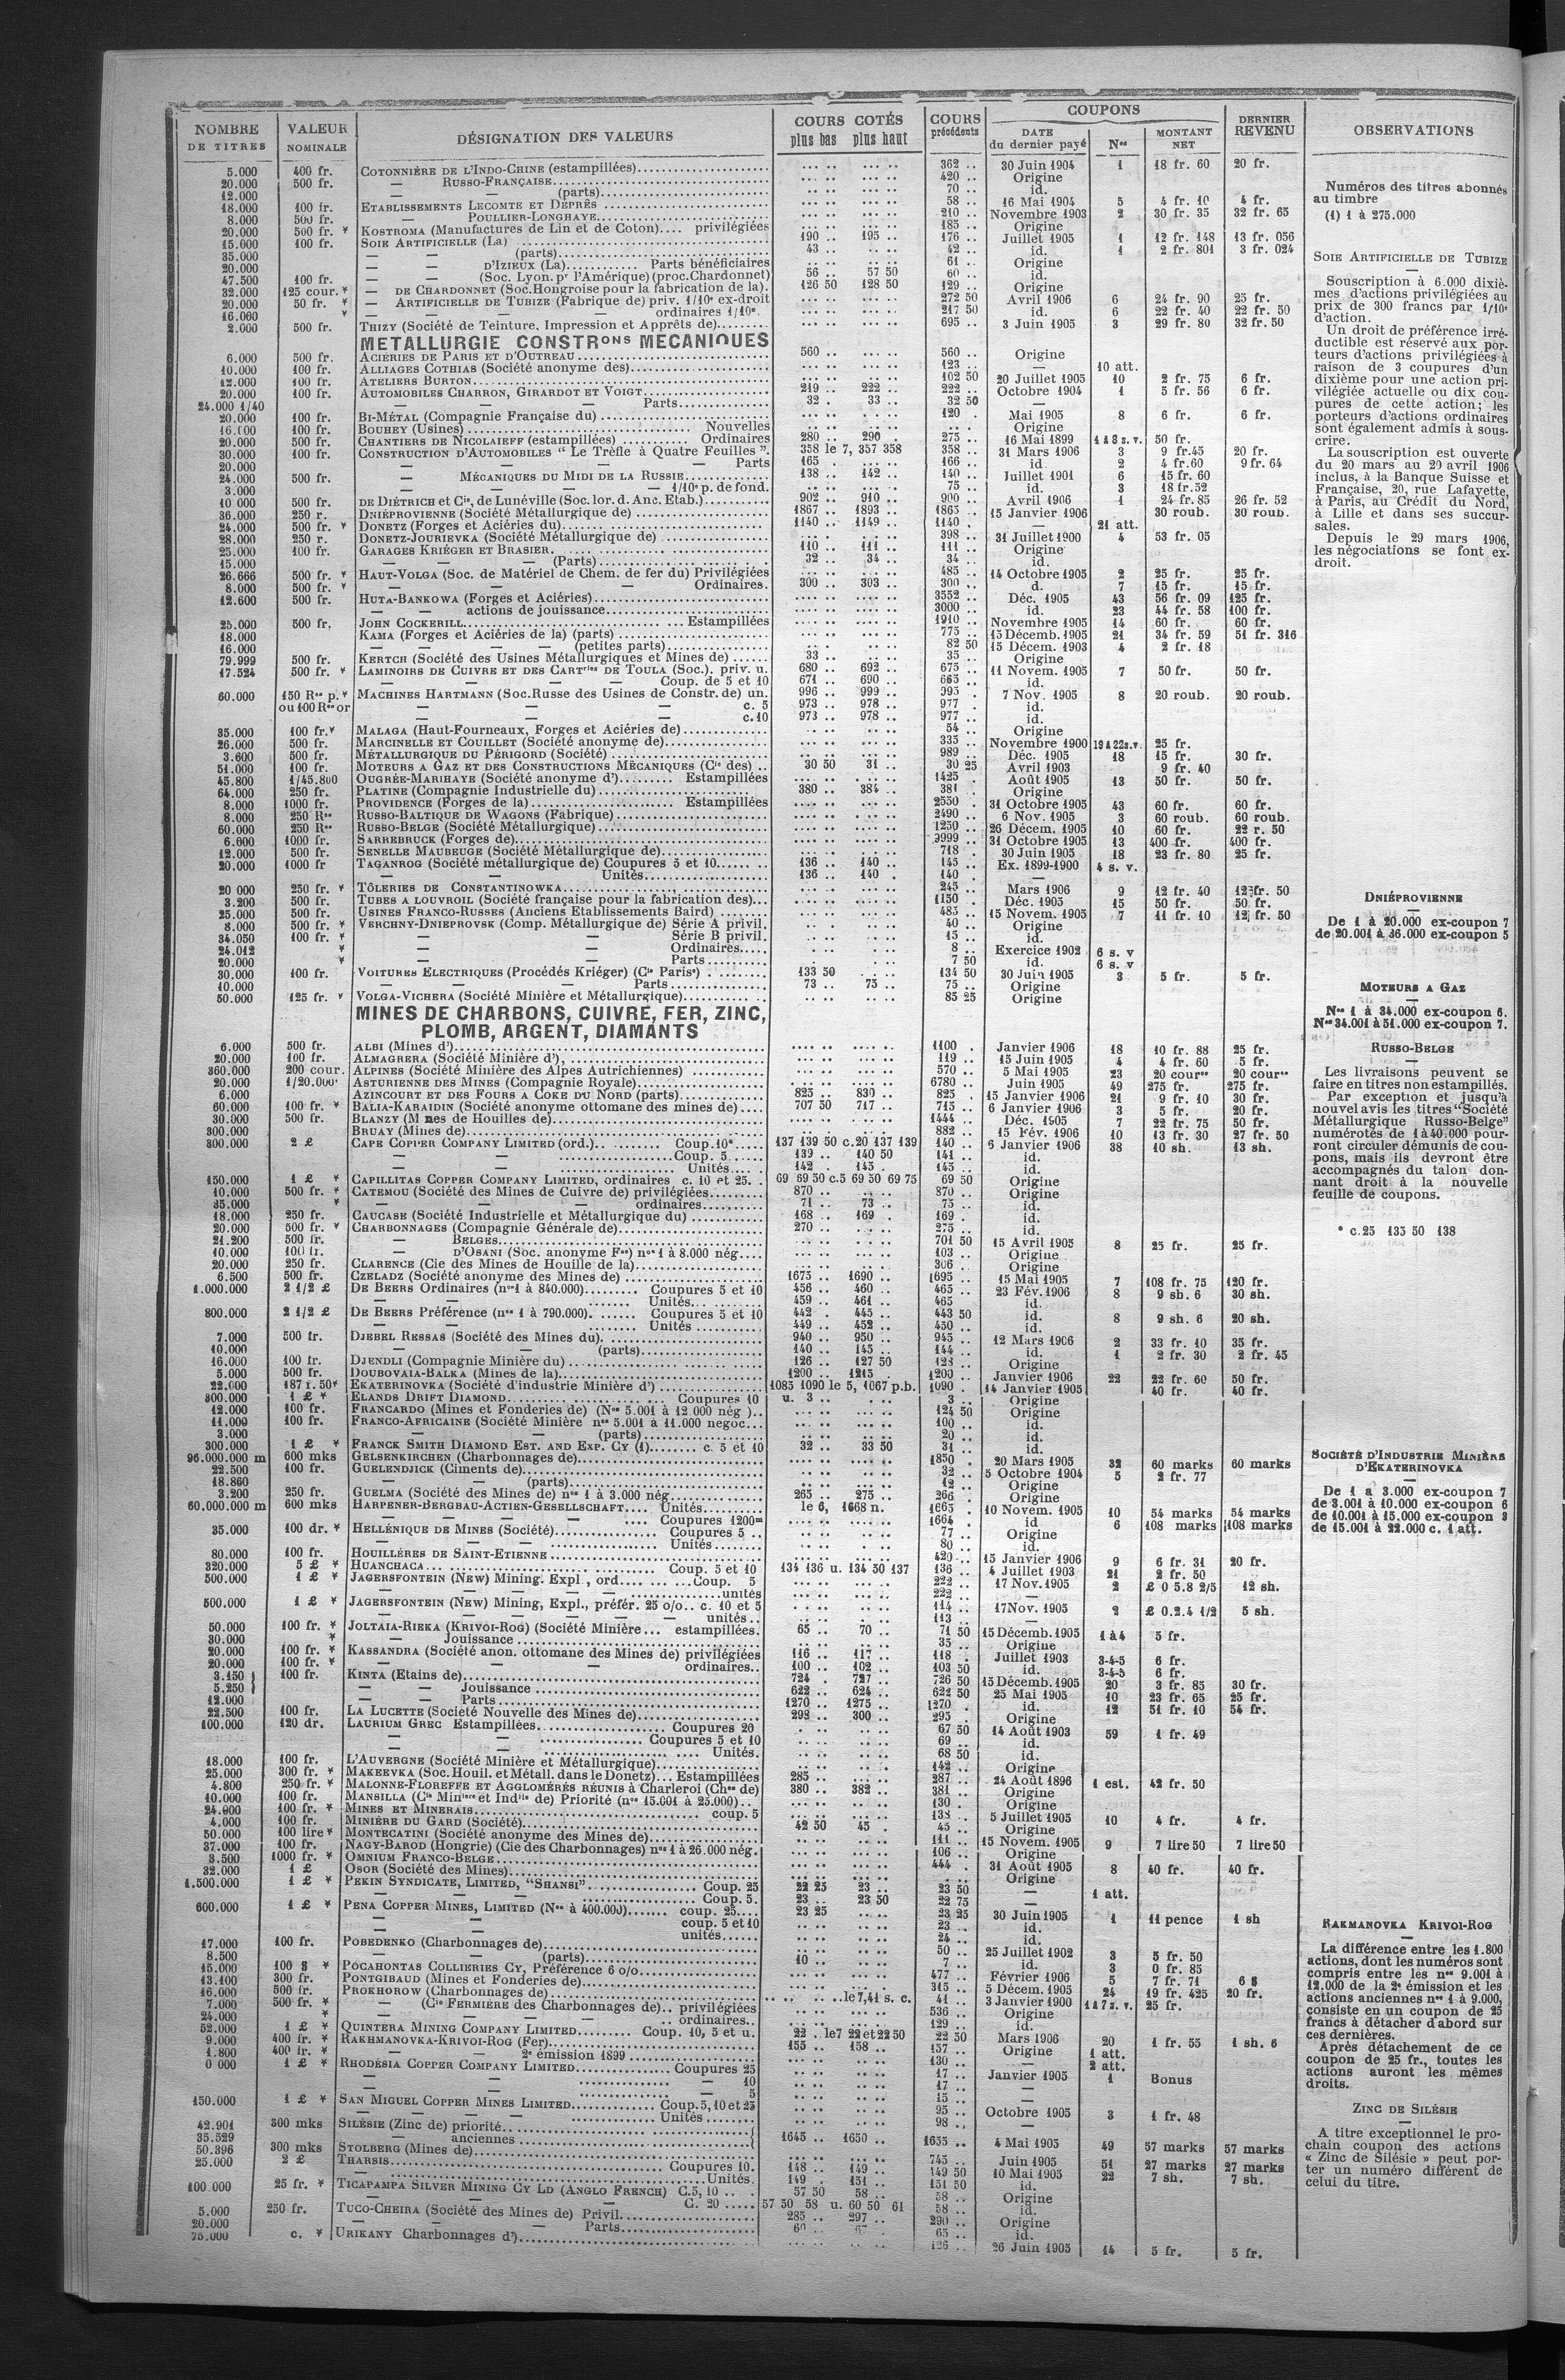 NOMBRE DE TITRES | VALEUR NOMINALE | DÉSIGNATION DES VALEURS | COURS COTÉS plus bas plus haut | COURS précédents | COUPONS DATE du dernier payé | Nos | MONTANT NET | DERNIER REVENU | OBSERVATIONS
5.000 400 fr. COTONNIÈRE DE L'INDO-CHINE (estampillées) 362 .. 30 Juin 1904 1 18 fr. 60 20 fr.
20.000 500 fr. — RUSSO-FRANÇAISE 420 .. Origine
12.000 — — (parts) 70 .. id.
18.000 100 fr. ETABLISSEMENTS LECOMTE ET DEPRÈS 58 .. 16 Mai 1904 5 4 fr. 10 4 fr.
8.000 500 fr. — POULLIER-LONGHAYE 210 .. Novembre 1903 2 30 fr. 35 32 fr. 65
20.000 500 fr. * KOSTROMA (Manufactures de Lin et de Coton).... privilégiées 185 .. Origine
15.600 100 fr. SOIE ARTIFICIELLE (La) 190 .. 195 .. 176 .. Juillet 1905 1 12 fr. 148 13 fr. 056
35.000 — — (parts) 43 .. 42 .. id. 1 2 fr. 801 3 fr. 024
20.000 — D'IZIEUX (La) Parts bénéficiaires 61 .. Origine
47.500 100 fr. — — (Soc. Lyon. pr l'Amérique) (proc. Chardonnet) 56 .. 57 50 60 .. id.
32.000 125 cour. * — DE CHARDONNET (Soc. Hongroise pour la fabrication de la). 126 50 128 50 129 .. Origine
20.000 50 fr. * — ARTIFICIELLE DE TUBIZE (Fabrique de) priv. 1/10e ex-droit 272 50 Avril 1906 6 24 fr. 90 25 fr.
16.000 * — — — ordinaires 1/10e. 217 50 id. 6 22 fr. 40 22 fr. 50
2.000 500 fr. THIZY (Société de Teinture, Impression et Apprêts de) 695 .. 3 Juin 1905 3 29 fr. 80 32 fr. 50
METALLURGIE CONSTRons MECANIQUES
6.000 500 fr. ACIÉRIES DE PARIS ET D'OUTREAU 560 .. 560 .. Origine
10.000 100 fr. ALLIAGES COTHIAS (Société anonyme des) 123 .. — 10 att.
12.000 100 fr. ATELIERS BURTON 102 50 20 Juillet 1905 10 2 fr. 75 6 fr.
20.000 100 fr. AUTOMOBILES CHARRON, GIRARDOT ET VOIGT 219 .. 222 .. 222 .. Octobre 1904 1 5 fr. 56 6 fr.
24.000 1/40 — — — Parts 32 . 33 .. 32 50 —
20.000 100 fr. BI-MÉTAL (Compagnie Française du) 120 . Mai 1905 8 6 fr. 6 fr.
16.000 100 fr. BOUHEY (Usines) Nouvelles Origine
20.000 500 fr. CHANTIERS DE NICOLAIEFF (estampillées) Ordinaires 280 .. 290 . 275 .. 16 Mai 1899 1 à 8 s. v. 50 fr.
30.000 100 fr. CONSTRUCTION D'AUTOMOBILES " Le Trèfle à Quatre Feuilles ". 358 le 7, 357 358 358 .. 31 Mars 1906 3 9 fr. 45 20 fr.
20.000 — — — Parts 165 . 166 .. id. 2 4 fr. 60 9 fr. 64
24.000 500 fr. — MÉCANIQUES DU MIDI DE LA RUSSIE 138 .. 142 .. 140 .. Juillet 1901 6 15 fr. 60
3.000 — — — 1/10e p. de fond. 75 .. id. 3 18 fr. 52
10 000 500 fr. DE DIÉTRICH et Cie, de Lunéville (Soc. lor. d. Anc. Etab.) 902 .. 910 .. 900 .. Avril 1906 1 24 fr. 85 26 fr. 52
36.000 250 r. DNIÉPROVIENNE (Société Métallurgique de) 1867 .. 1893 .. 1865 .. 15 Janvier 1906 30 roub. 30 roub.
24.000 500 fr. * DONETZ (Forges et Aciéries du) 1140 .. 1149 .. 1140 . — 21 att.
28.000 250 r. DONETZ-JOURIEVKA (Société Métallurgique de) 398 .. 31 Juillet 1900 4 53 fr. 05
25.000 100 fr. GARAGES KRIÉGER ET BRASIER 110 .. 111 .. 111 .. Origine
15.000 — — — (Parts) 32 .. 34 .. 34 .. id.
26.666 500 fr. * HAUT-VOLGA (Soc. de Matériel de Chem. de fer du) Privilégiées 485 .. 14 Octobre 1905 2 25 fr. 25 fr.
8.000 500 fr. * — — — Ordinaires. 300 .. 303 .. 300 .. d. 7 15 fr. 15 fr.
12.600 500 fr. HUTA-BANKOWA (Forges et Aciéries) 3552 .. Déc. 1905 43 56 fr. 09 125 fr.
— — actions de jouissance 3000 .. id. 23 44 fr. 58 100 fr.
25.000 500 fr. JOHN COCKERILL Estampillées 1910 .. Novembre 1905 14 60 fr. 60 fr.
18.000 KAMA (Forges et Aciéries de la) (parts) 775 .. 15 Décemb. 1905 21 34 fr. 59 51 fr. 316
16.000 — — — — (petites parts) 82 50 15 Déc. 1903 4 2 fr. 18
79.999 500 fr. KERTCH (Société des Usines Métallurgiques et Mines de) 33 .. 35 .. Origine
17.524 500 fr. * LAMINOIRS DE CUIVRE ET DES CARTries DE TOULA (Soc.). priv. u. 680 .. 692 .. 675 .. 11 Novem. 1905 7 50 fr. 50 fr.
— — — Coup. de 5 et 10 671 .. 690 .. 665 .. id.
60.000 150 Res p. * MACHINES HARTMANN (Soc. Russe des Usines de Constr. de) un. 996 .. 999 .. 995 . 7 Nov. 1905 8 20 roub. 20 roub.
ou 100 Res or — — — c. 5 973 .. 978 .. 977 . id.
— — — c. 10 973 .. 978 .. 977 .. id.
35.000 100 fr. * MALAGA (Haut-Fourneaux, Forges et Aciéries de) 54 .. Origine
26.000 500 fr. MARCINELLE ET COUILLET (Société anonyme de) 335 .. Novembre 1900 19 à 22 s.v. 25 fr.
3.600 500 fr. MÉTALLURGIQUE DU PÉRIGORD (Société) 989 .. Déc. 1905 18 15 fr. 30 fr.
51.000 100 fr. MOTEURS A GAZ ET DES CONSTRUCTIONS MÉCANIQUES (Cie des) 30 50 31 .. 30 25 Avril 1903 9 fr. 40
45.800 1/45.800 OUGRÉE-MARIHAYE (Société anonyme d') Estampillées 1425 . Août 1905 13 50 fr. 50 fr.
64.000 250 fr. PLATINE (Compagnie Industrielle du) 380 .. 384 .. 381 . Origine
8.000 1000 fr. PROVIDENCE (Forges de la) Estampillées 2550 . 31 Octobre 1905 43 60 fr. 60 fr.
8.000 250 Res RUSSO-BALTIQUE DE WAGONS (Fabrique) 2490 .. 6 Nov. 1905 3 60 roub. 60 roub.
60.000 250 Res RUSSO-BELGE (Société Métallurgique) 1250 .. 26 Décem. 1905 10 60 fr. 22 r. 50
6.600 1000 fr. SARREBRUCK (Forges de) 9999 .. 31 Octobre 1905 13 400 fr. 400 fr.
12.000 500 fr. SENELLE MAUBEUGE (Société Métallurgique de) 718 . 30 Juin 1905 18 23 fr. 80 25 fr.
20.000 1000 fr TAGANROG (Société métallurgique de) Coupures 5 et 10 136 .. 140 .. 145 .. Ex. 1899-1900 4 s. v.
— — Unités 136 .. 140 . 140 . —
20 000 250 fr. * TÔLERIES DE CONSTANTINOWKA 245 .. Mars 1906 9 12 fr. 40 12 fr. 50
3.200 500 fr. TUBES A LOUVROIL (Société française pour la fabrication des) 1150 . Déc. 1905 15 50 fr. 50 fr.
25.000 500 fr. USINES FRANCO-RUSSES (Anciens Etablissements Baird) 485 .. 15 Novem. 1905 7 11 fr. 10 12 fr. 50
8.000 500 fr. * VERCHNY-DNIEPROVSK (Comp. Métallurgique de) Série A privil. 40 .. Origine
34.050 100 fr. * — — Série B privil. 15 .. id.
24.012 * — — Ordinaires 8 .. Exercice 1902 6 s. v
20.000 * — — Parts 7 50 id. 6 s. v
30.000 100 fr. VOITURES ELECTRIQUES (Procédés Kriéger) (Cie Parise) 133 50 134 50 30 Juin 1905 3 5 fr. 5 fr.
10.000 — — — Parts 73 .. 75 .. 75 .. Origine
50.000 125 fr. * VOLGA-VICHERA (Société Minière et Métallurgique) 85 25 Origine
MINES DE CHARBONS, CUIVRE, FER, ZINC,
PLOMB, ARGENT, DIAMANTS
6.000 500 fr. ALBI (Mines d') 1100 . Janvier 1906 18 10 fr. 88 25 fr.
20.000 100 fr. ALMAGRERA (Société Minière d') 119 .. 15 Juin 1905 4 4 fr. 60 5 fr.
360.000 200 cour. ALPINES (Société Minière des Alpes Autrichiennes) 570 .. 5 Mai 1905 23 20 cour. 20 cour.
20.000 1/20.000e ASTURIENNE DES MINES (Compagnie Royale) 6780 .. Juin 1905 49 275 fr. 275 fr.
6.000 AZINCOURT ET DES FOURS A COKE DU NORD (parts) 825 .. 830 .. 825 . 15 Janvier 1906 21 9 fr. 10 30 fr.
60.000 100 fr. * BALIA-KARAIDIN (Société anonyme ottomane des mines de) 707 50 717 .. 715 .. 6 Janvier 1906 3 5 fr. 20 fr.
30.000 500 fr. BLANZY (M nes de Houilles de) 1444 .. Déc. 1905 7 22 fr. 75 50 fr.
300.000 BRUAY (Mines de) 882 .. 15 Fév. 1906 10 13 fr. 30 27 fr. 50
300.000 2 £ CAPE COPPER COMPANY LIMITED (ord.) Coup. 10* 137 139 50 c. 20 137 139 140 .. 6 Janvier 1906 38 10 sh. 13 sh.
— — Coup. 5 139 .. 140 50 141 .. id.
— — Unités 142 . 145 . 145 .. id.
150.000 1 £ * CAPILLITAS COPPER COMPANY LIMITED, ordinaires c. 10 et 25. 69 69 50 c.5 69 50 69 75 69 50 Origine
10.000 500 fr. * CATEMOU (Société des Mines de Cuivre de) privilégiées 870 .. 870 .. Origine
35.000 * — — ordinaires 71 .. 73 .. 75 .. id.
18.000 250 fr. CAUCASE (Société Industrielle et Métallurgique du) 168 .. 169 . 169 . id.
20.000 500 fr. * CHARBONNAGES (Compagnie Générale de) 270 .. 275 .. id.
21.200 500 fr. — BELGES 701 50 15 Avril 1905 8 25 fr. 25 fr.
10.000 100 fr. — D'OSANI (Soc. anonyme Fse) nos 1 à 8.000 nég. 103 .. Origine
20.000 250 fr. CLARENCE (Cie des Mines de Houille de la) 306 .. Origine
6.500 500 fr. CZELADZ (Société anonyme des Mines de) 1675 .. 1690 .. 1695 .. 15 Mai 1905 7 108 fr. 75 120 fr.
1.000.000 2 1/2 £ DE BEERS Ordinaires (nos 1 à 840.000) Coupures 5 et 10 456 .. 460 .. 465 .. 23 Fév. 1906 8 9 sh. 6 30 sh.
— — Unités 459 .. 461 .. 465 id.
800.000 2 1/2 £ DE BEERS Préférence (nos 1 à 790.000) Coupures 5 et 10 442 . 445 .. 443 50 id. 8 9 sh. 6 20 sh.
— — Unités 449 .. 452 .. 450 .. id.
7.000 500 fr. DJEBEL RESSAS (Société des Mines du) 940 .. 950 .. 945 .. 12 Mars 1906 2 33 fr. 10 35 fr.
10.000 — — (parts) 140 .. 145 .. 144 .. id. 1 2 fr. 30 2 fr. 45
16.000 100 fr. DJENDLI (Compagnie Minière du) 126 .. 127 50 128 .. Origine
5.000 500 fr. DOUBOVAIA-BALKA (Mines de la) 1200 .. 1215 . 1200 .. Janvier 1906 22 22 fr. 60 50 fr.
22.000 187 r. 50 * EKATERINOVKA (Société d'industrie Minière d') 1085 1090 le 5, 1067 p.b. 1090 . 14 Janvier 1905 40 fr. 40 fr.
300.000 1 £ * ELANDS DRIFT DIAMOND Coupures 10 u. 3 .. 3 .. Origine
12.000 100 fr. FRANCARDO (Mines et Fonderies de) (Nos 5.001 à 12 000 nég ) 124 50 Origine
11.000 100 fr. FRANCO-AFRICAINE (Société Minière nos 5.001 à 11.000 negoc. 100 .. id.
3.000 — — (parts) 20 .. id.
300.000 1 £ * FRANCK SMITH DIAMOND EST. AND EXP. CY (1) c. 5 et 10 32 .. 33 50 31 .. id.
96.000.000 m 600 mks GELSENKIRCHEN (Charbonnages de) 1850 . 20 Mars 1905 32 60 marks 60 marks
22.500 100 fr. GUELENDJICK (Ciments de) 32 .. 5 Octobre 1904 5 2 fr. 77
18.860 — — (parts) 12 .. Origine
3.200 250 fr. GUELMA (Société des Mines de) nos 1 à 3.000 nég. 265 .. 275 .. 266 . Origine
60.000.000 m 600 mks HARPENER-BERGBAU-ACTIEN-GESELLSCHAFT Unités le 6, 1668 n. 1665 . 10 Novem. 1905 10 54 marks 54 marks
— — — — Coupures 1200m 1664 . id 6 108 marks 108 marks
35.000 100 dr. * HELLÉNIQUE DE MINES (Société) Coupures 5 77 .. Origine
— — — Unités 80 .. id.
80.000 100 fr. HOUILLÈRES DE SAINT-ETIENNE 429 .. 15 Janvier 1906 9 6 fr. 31 20 fr.
320.000 5 £ * HUANCHACA Coup. 5 et 10 134 136 u. 134 50 137 136 .. 4 Juillet 1903 21 2 fr. 50
500.000 1 £ * JAGERSFONTEIN (NEW) Mining. Expl., ord. Coup. 5 222 .. 17 Nov. 1905 2 £ 0 5.8 2/5 12 sh.
— — — unités 222 .. —
500.000 1 £ * JAGERSFONTEIN (NEW) Mining, Expl., préfér. 25 o/o.. c. 10 et 5 114 .. 17 Nov. 1905 2 £ 0.2.4 1/2 5 sh.
— — — unités 113 .. —
50.000 100 fr. * JOLTAIA-RIEKA (KRIVOI-ROG) (Société Minière... estampillées. 65 .. 70 .. 71 50 15 Décemb. 1905 1 à 4 5 fr.
30.000 * — Jouissance 35 .. Origine
20.000 100 fr. * KASSANDRA (Société anon. ottomane des Mines de) privilégiées 116 .. 117 .. 118 . Juillet 1903 3-4-5 6 fr.
20.000 100 fr. * — — ordinaires 100 .. 102 .. 103 50 id. 3-4-5 6 fr.
3.150 100 fr. KINTA (Etains de) 724 . 727 .. 726 50 15 Décemb. 1905 20 3 fr. 85 30 fr.
5.250 — — Jouissance 622 .. 624 .. 622 50 25 Mai 1905 10 23 fr. 65 25 fr.
12.000 — — Parts 1270 .. 1275 .. 1270 . id. 12 51 fr. 10 54 fr.
22.500 100 fr. LA LUCETTE (Société Nouvelle des Mines de) 298 .. 300 .. 295 . Origine
100.000 120 dr. LAURIUM GREC Estampillées Coupures 20 67 50 14 Août 1903 59 1 fr. 49
— — Coupures 5 et 10 69 .. id.
— — Unités. 68 50 id.
18.000 100 fr. L'AUVERGNE (Société Minière et Métallurgique) 142 .. Origine
25.000 300 fr. * MAKEEVKA (Soc. Houil. et Métall. dans le Donetz) Estampillées 285 .. 287 .. 24 Août 1896 1 est. 42 fr. 50
4.800 250 fr. * MALONNE-FLOREFFE ET AGGLOMÉRÉS RÉUNIS à Charleroi (Chges de) 380 .. 382 .. 381 .. Origine
10.000 100 fr. MANSILLA (Cie Minière et Indlle de) Priorité (nos 15.001 à 25.000) 130 . Origine
24.000 100 fr. * MINES ET MINERAIS coup. 5
4.000 100 fr. MINIÈRE DU GARD (Société) 138 .. 5 Juillet 1905 10 4 fr. 4 fr.
50.000 100 lire * MONTECATINI (Société anonyme des Mines de) 42 50 45 . 45 .. Origine
37.000 100 fr. NAGY-BAROD (Hongrie) (Cie des Charbonnages) nos 1 à 26.000 nég. 111 .. 15 Novem. 1905 9 7 lire 50 7 lire 50
3.500 1000 fr. * OMNIUM FRANCO-BELGE 106 .. Origine
32.000 1 £ OSOR (Société des Mines) 444 . 31 Août 1905 8 40 fr. 40 fr.
1.500.000 1 £ * PEKIN SYNDICATE, LIMITED, "SHANSI" Coup. 25 22 25 23 .. 23 50 — 1 att.
— — — Coup. 5. 23 .. 23 50 22 75 —
600.000 1 £ * PENA COPPER MINES, LIMITED (Nos à 400.000) coup. 25 23 25 23 25 30 Juin 1905 1 11 pence 1 sh
— — coup. 5 et 10 23 .. id.
— — unités 24 .. id.
17.000 100 fr. POBEDENKO (Charbonnages de) 50 .. 25 Juillet 1902 3 5 fr. 50
8.500 — — (parts) 10 .. 7 .. id. 3 0 fr. 85
15.000 100 $ * POCAHONTAS COLLIERIES CY, Préférence 6 o/o 477 .. Février 1906 5 7 fr. 71 6 $
13.100 300 fr. PONTGIBAUD (Mines et Fonderies de) 315 .. 5 Décem. 1905 24 19 fr. 425 20 fr.
16.000 500 fr. PROKHOROW (Charbonnages de) le 7, 41 s. c. 41 .. 3 Janvier 1900 1 à 7 s. v. 25 fr.
7.000 500 fr. * — (Cie FERMIÈRE des Charbonnages de) privilégiées 536 .. Origine
24.000 * — — ordinaires 129 .. id.
52.000 1 £ * QUINTERA MINING COMPANY LIMITED Coup. 10, 5 et u. 22 .. le 7 22 et 22 50 22 50 Mars 1906 20 1 fr. 55 1 sh. 6
9.000 400 fr. * RAKHMANOVKA-KRIVOI-ROG (Fer) 155 .. 158 .. 157 .. Origine 1 att.
1.800 400 fr. * — — 2e émission 1899 130 .. — 2 att.
0 000 1 £ * RHODÉSIA COPPER COMPANY LIMITED Coupures 25 17 .. Janvier 1905 1 Bonus
— — — 10 17 .. —
— — — 5 15 .. —
150.000 1 £ * SAN MIGUEL COPPER MINES LIMITED Coup. 5, 10 et 25 95 .. Octobre 1905 3 1 fr. 48
— — — Unités 98 .. —
42.901 300 mks SILÉSIE (Zinc de) priorité
35.529 — anciennes 1645 .. 1650 .. 1655 .. 4 Mai 1905 49 57 marks 57 marks
50.396 300 mks STOLBERG (Mines de) 745 .. Juin 1905 51 27 marks 27 marks
25.000 2 £ THARSIS Coupures 10. 148 .. 149 .. 149 50 10 Mai 1905 22 7 sh. 7 sh.
— Unités. 149 . 151 .. 151 50 id.
100.000 25 fr. * TICAPAMPA SILVER MINING CY LD (ANGLO FRENCH) C. 5, 10 57 50 58 .. 58 .. Origine
— — C. 20 57 50 58 u. 60 50 61 58 .. id.
5.000 250 fr. TUCO-CHEIRA (Société des Mines de) Privil. 285 .. 297 .. 290 .. Origine
20.000 — — — Parts 65 .. id.
75.000 c. * URIKANY Charbonnages d') 126 .. 26 Juin 1905 14 5 fr. 5 fr.
Numéros des titres abonnés
au timbre
(1) 1 à 275.000
SOIE ARTIFICIELLE DE TUBIZE
Souscription à 6.000 dixiè-
mes d'actions privilégiées au
prix de 300 francs par 1/10e
d'action.
Un droit de préférence irré-
ductible est réservé aux por-
teurs d'actions privilégiées à
raison de 3 coupures d'un
dixième pour une action pri-
vilégiée actuelle ou dix cou-
pures de cette action; les
porteurs d'actions ordinaires
sont également admis à sous-
crire.
La souscription est ouverte
du 20 mars au 20 avril 1906
inclus, à la Banque Suisse et
Française, 20, rue Lafayette,
à Paris, au Crédit du Nord,
à Lille et dans ses succur-
sales.
Depuis le 29 mars 1906,
les négociations se font ex-
droit.
DNIÉPROVIENNE
De 1 à 20.000 ex-coupon 7
de 20.001 à 36.000 ex-coupon 5
MOTEURS A GAZ
Nos 1 à 34.000 ex-coupon 6.
Nos 34.001 à 51.000 ex-coupon 7.
RUSSO-BELGE
Les livraisons peuvent se
faire en titres non estampillés.
Par exception et jusqu'à
nouvel avis les titres "Société
Métallurgique Russo-Belge"
numérotés de 1 à 40.000 pour-
ront circuler démunis de cou-
pons, mais ils devront être
accompagnés du talon don-
nant droit à la nouvelle
feuille de coupons.
* c.25 135 50 138
SOCIÉTÉ D'INDUSTRIE MINIÈRE
D'EKATERINOVKA
De 1 a 3.000 ex-coupon 7
de 3.001 à 10.000 ex-coupon 6
de 10.001 à 15.000 ex-coupon 3
de 15.001 à 22.000 c. 1 att.
RAKMANOVKA KRIVOI-ROG
La différence entre les 1.800
actions, dont les numéros sont
compris entre les nos 9.001 à
12.000 de la 2e émission et les
actions anciennes nos 1 à 9.000,
consiste en un coupon de 25
francs à détacher d'abord sur
ces dernières.
Après détachement de ce
coupon de 25 fr., toutes les
actions auront les mêmes
droits.
ZINC DE SILÉSIE
A titre exceptionnel le pro-
chain coupon des actions
« Zinc de Silésie » peut por-
ter un numéro différent de
celui du titre.